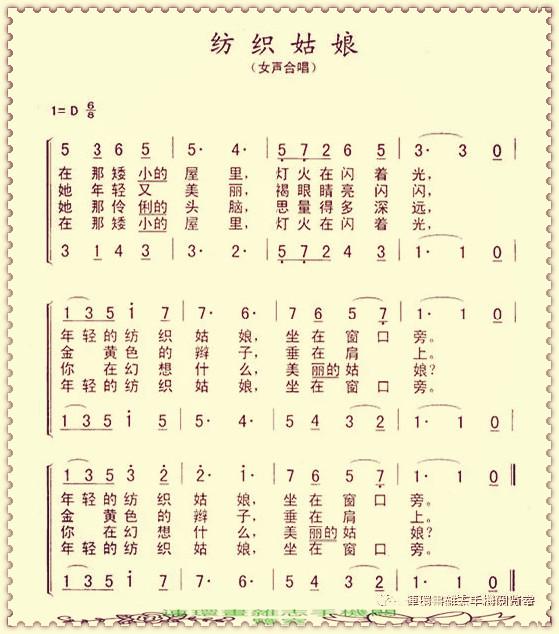 纺织姑娘
（女声合唱）
1= D 6/8
5 3 6 5 | 5· 4· | 5 7 2 6 5 | 3· 3 0
在那矮小的屋里，灯火在闪着光，
她年轻又美丽，褐眼睛亮闪闪，
她那伶俐的头脑，思量得多深远，
在那矮小的屋里，灯火在闪着光，
3 1 4 3 | 3· 2· | 5 7 2 4 3 | 1· 1 0
1 3 5 i 7 | 7· 6· | 7 6 5 7 | 1· 1 0
年轻的纺织姑娘，坐在窗口旁。
金黄色的辫子，垂在肩上。
你在幻想什么，美丽的姑娘？
年轻的纺织姑娘，坐在窗口旁。
1 3 5 i 5 | 5· 4· | 5 4 3 2 | 1· 1 0
1 3 5 3 2 | 2· i· | 7 6 5 7 | 1· 1 0
年轻的纺织姑娘，坐在窗口旁。
金黄色的辫子，垂在肩上。
你在幻想什么，美丽的姑娘？
年轻的纺织姑娘，坐在窗口旁。
1 3 5 i 7 | 7· 6· | 5 4 3 2 | 1· 1 0
連環畫雜志手機閱覽室